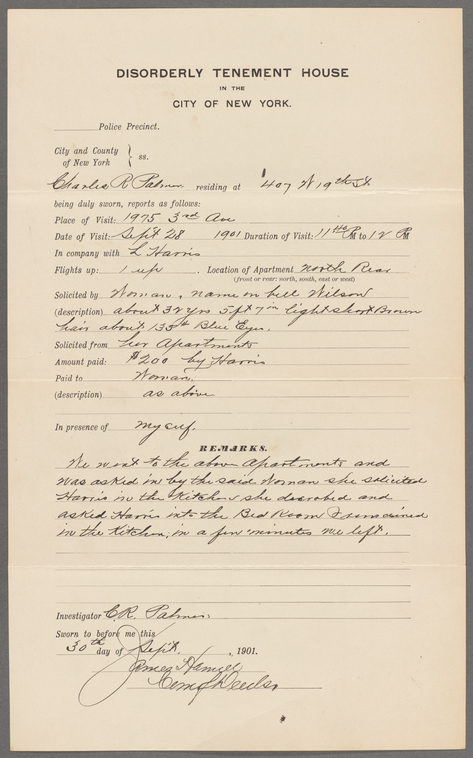 DISORDERLY TENEMENT HOUSE
IN THE
CITY OF NEW YORK.
Police Precinct.
City and County
of New York } ss.
Charles R Palmer residing at 407 W 19th St
being duly sworn, reports as follows:
Place of Visit: 1975 3rd Ave
Date of Visit: Sept 28 1901 Duration of Visit: PM to 12 PM
In company with L Harris
Flights up: 1 up Location of Apartment North Rear
(front or rear: north, south, east or west)
Solicited by Woman, name on bell Wilson
(description) about 32 yrs 5 ft 7 in light short Brown
hair about 135 lb Blue Eyes.
Solicited from her Apartments
Amount paid: $2.00 by Harris
Paid to Woman.
(description) as above
In presence of myself.
REMARKS.
We went to the above Apartments and
was asked in by the said Woman she solicited
Harris in the Kitchen she disrobed and
asked Harris into the Bed Room I remained
in the Kitchen, in a few minutes we left.
Investigator C.R. Palmer.
Sworn to before me this
30th day of Sept. , 1901.
James
Com of Deeds